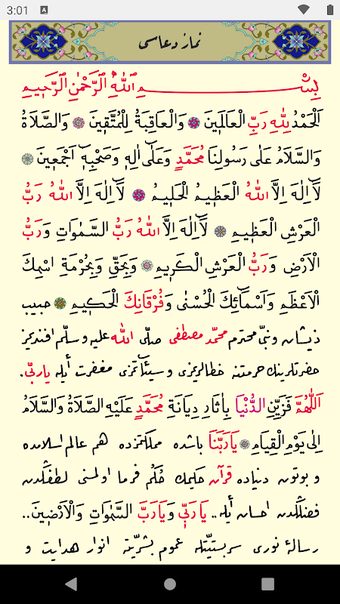 3:01
نماز دعاسی
بِسْــــــمِ اللّٰهِ الرَّحْمٰنِ الرَّحِيمِ
اَلْحَمْدُ لِلّٰهِ رَبِّ الْعَالَمِينَ وَالْعَاقِبَةُ لِلْمُتَّقِينَ وَالصَّلَاةُ
وَالسَّلَامُ عَلٰى رَسُولِنَا مُحَمَّدٍ وَعَلٰٓى اٰلِهِ وَصَحْبِهِٓ اَجْمَعِينَ
لَٓا اِلٰهَ اِلَّا اللّٰهُ الْعَظِيمُ الْحَلِيمُ لَٓا اِلٰهَ اِلَّا اللّٰهُ رَبُّ
الْعَرْشِ الْعَظِيمِ لَٓا اِلٰهَ اِلَّا اللّٰهُ رَبُّ السَّمٰوَاتِ وَرَبُّ
الْاَرْضِ وَرَبُّ الْعَرْشِ الْكَرِيمِ وَبِحَقِّ وَبِحُرْمَةِ اسْمِكَ
الْاَعْظَمِ وَاَسْمَٓائِكَ الْحُسْنٰى وَفُرْقَانِكَ الْحَكِيمِ حبيب
ذيشان ونبىّ محترم محمّد مصطفى صلّى اللّٰه عليه وسلّم افنديمز
حضرتلرينك حرمتنه خطالريمزى وسيئاتمزى مغفرت أيله ياربّى.
اَللّٰهُمَّ فَزَيِّنِ الدُّنْيَا بِاٰثَارِ دِيَانَةِ مُحَمَّدٍ عَلَيْهِ الصَّلَاةُ وَالسَّلَامُ
اِلٰى يَوْمِ الْقِيَامِ يَارَبَّنَا باشده مملكتمزده هم عالم اسلامده
و بوتون دنياده قرآن حكيمك حُكم فرما اولمسنى لطفكدن
فضلكدن احسان أيله.. يَارَبِّى وَيَارَبَّ السَّمٰوَاتِ وَالْاَرَضِينَ..
رسالۀ نورى سربستيّتله عموم بشريّته انوار هدايت و